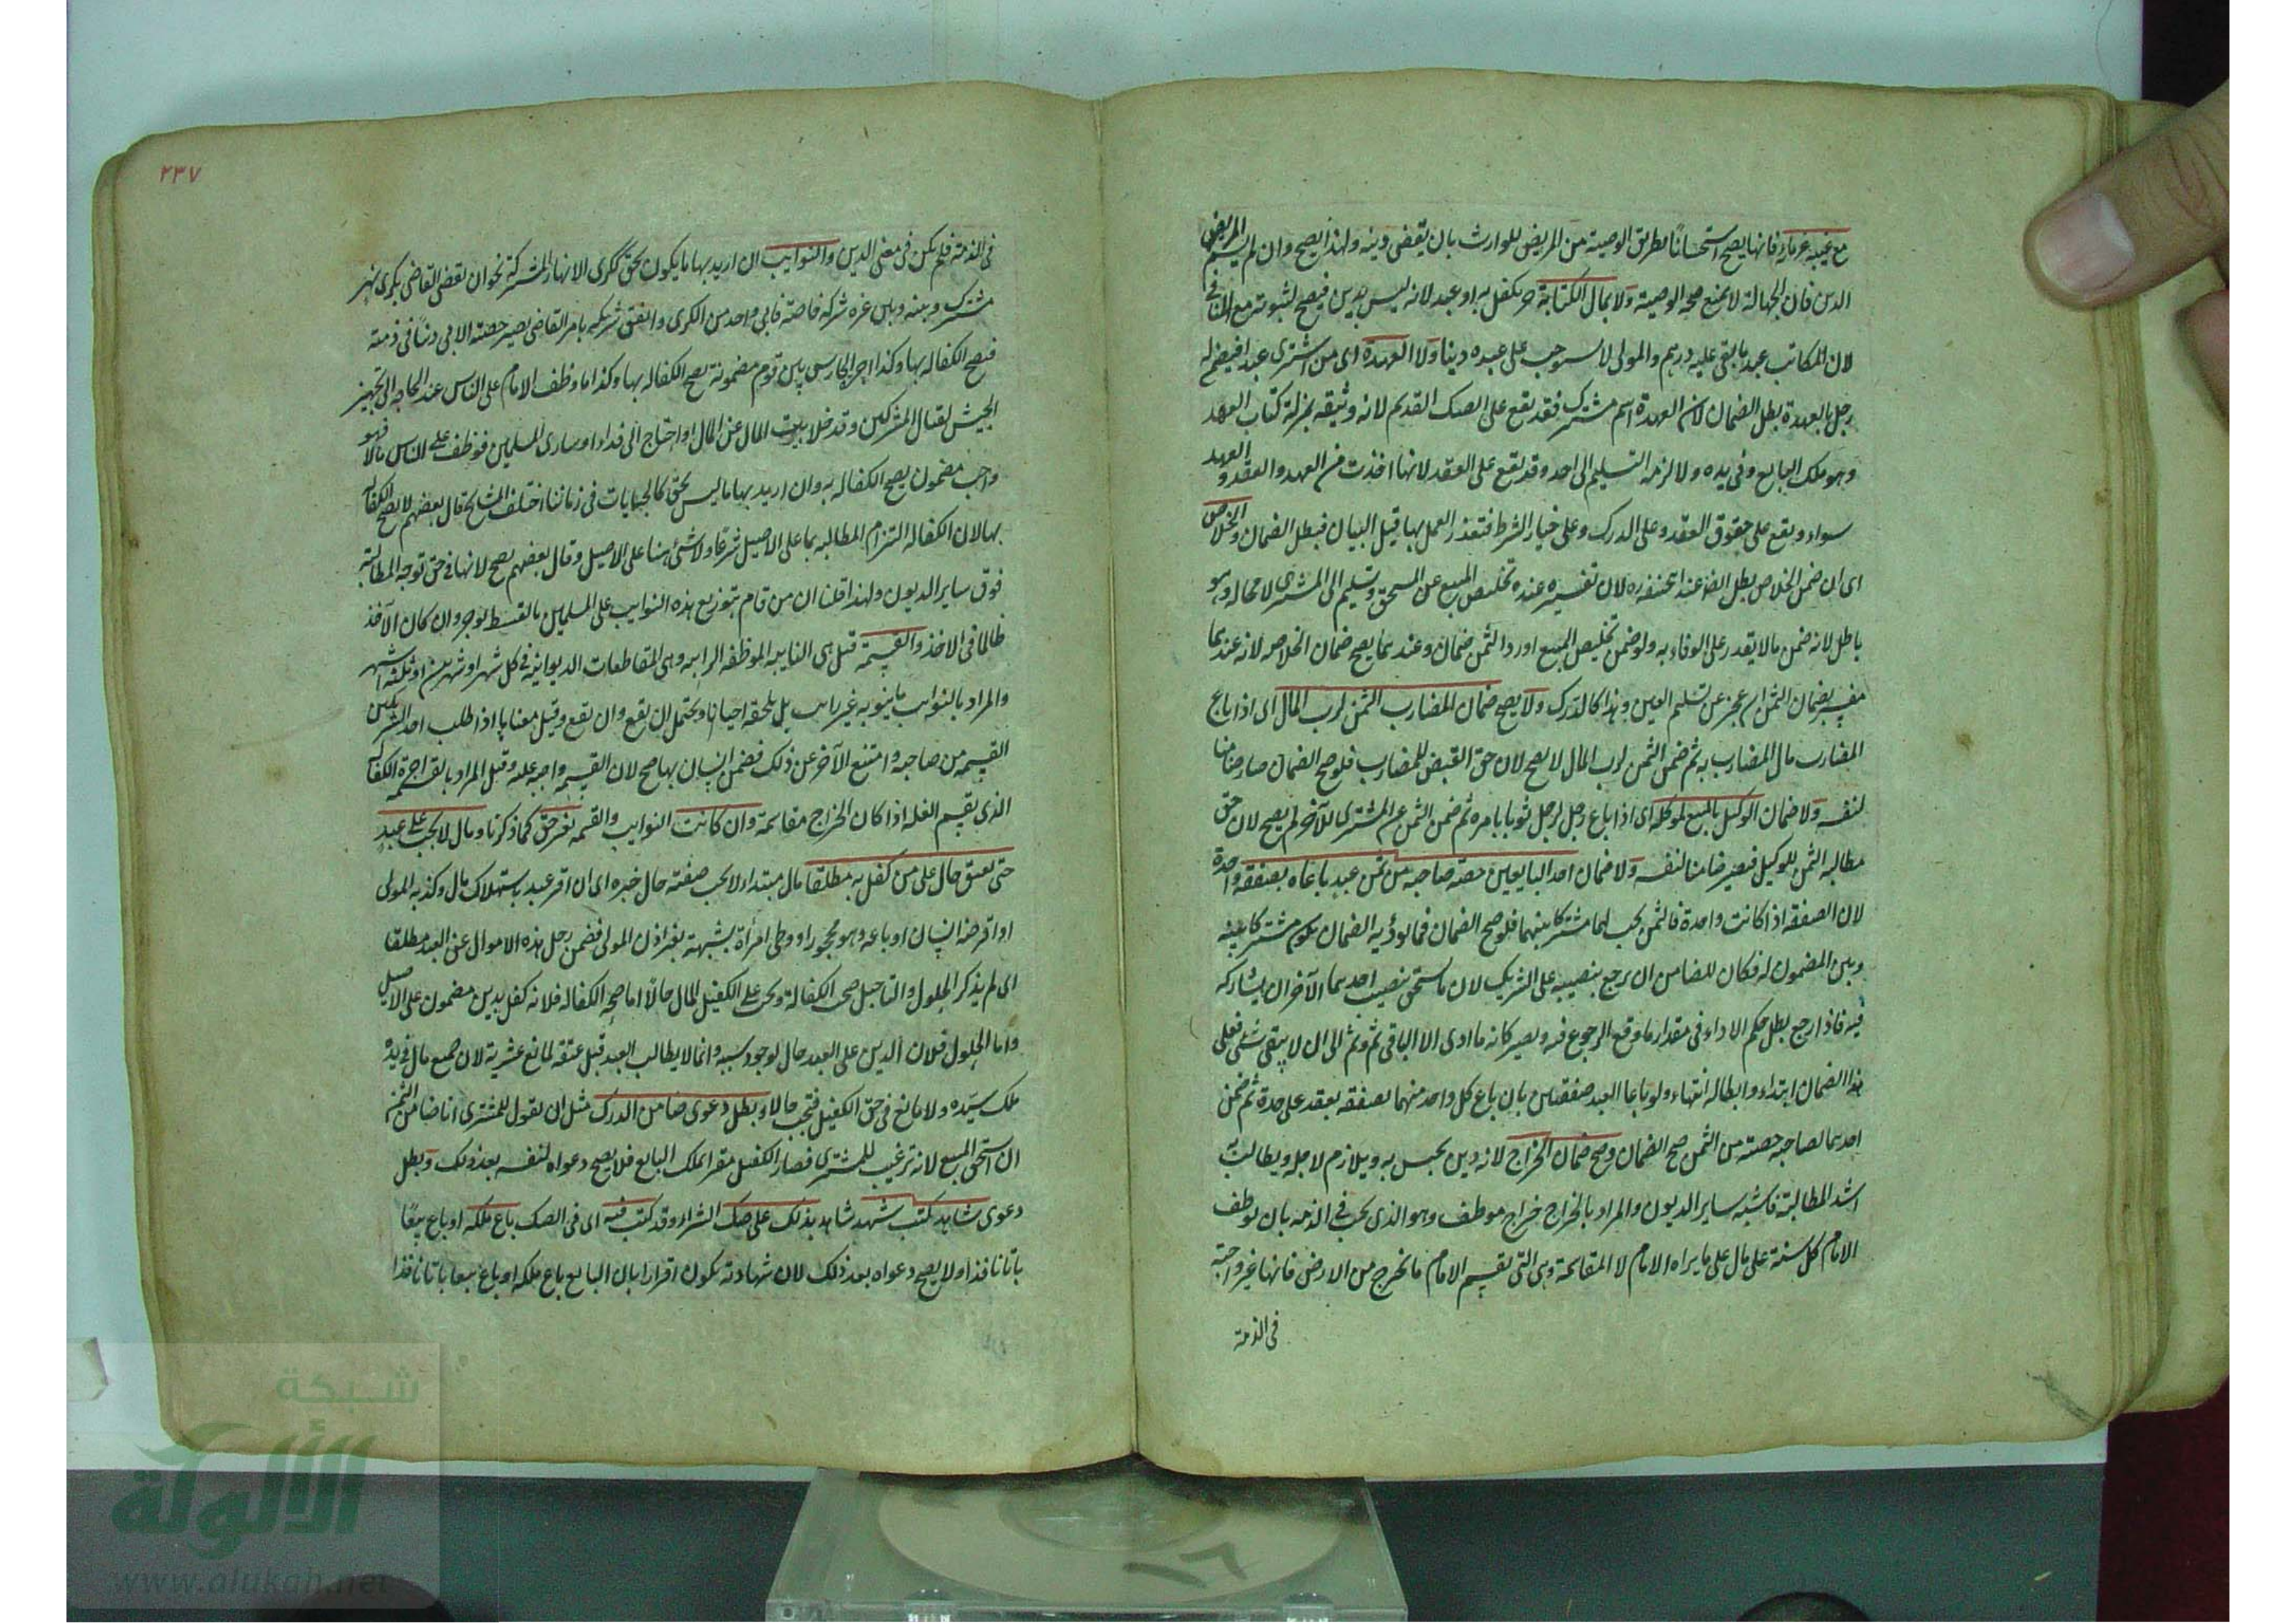 مع غيبة غرمائه فانها يصح استحسانًا بطريق الوصية من المريض للوارث بان يقضى دينه ولهذا يصح وان لم يسم المريض
الدين فان الجهالة لا يمنع صحة الوصية ولا بمال الكتابة حر يكفل به او عبد لانه ليس بدين فيصح لثبوته مع المنافى
لان المكاتب عبد ما بقى عليه درهم والمولى لا يستوجب على عبده دينا ولا العهدة اى من اشترى عبدا فيضمن له
رجل بالعهدة بطل الضمان لان العهدة اسم مشترك فقد يقع على الصك القديم لانه وثيقه بمنزلة كتاب العهد
وهو ملك البايع وفى يده ولا لزمه التسليم الى احد وقد يقع على العقد لانها اخذت من العهد والعقد والعهد
سواء ويقع على حقوق العقد وعلى الدرك وعلى خيار الشرط فتعذر العمل بها قبل البيان فبطل الضمان والخلاص
اى ان ضمن الخلاص بطل الضمان عند ابى حنيفه ره لان تفسيره عنده تخليص المبيع عن المستحق وتسليمه الى المشترى لا محاله وهو
باطل لانه ضمن ما لا يقدر على الوفاء به ولو ضمن تخليص المبيع او رد الثمن ضمان وعندهما يصح ضمان الخلاص لانه عندهما
مفسر بضمان الثمن ان عجز عن تسليم العين وهذا كالدرك ولا يصح ضمان المضارب الثمن لرب المال اى اذا باع
المضارب مال المضاربه ثم ضمن الثمن لرب المال لا يصح لان حق القبض للمضارب فلو صح الضمان صار ضامنا
لنفسه ولا ضمان الوكيل بالبيع لموكله اى اذا باع رجل لرجل ثوبا بامره ثم ضمن الثمن عن المشترى للآخر لم يصح لان حق
مطالبة الثمن للوكيل فيصير ضامنا لنفسه ولا ضمان احد البايعين حصة صاحبه من ثمن عبد باعاه بصفقة واحدة
لان الصفقه اذا كانت واحدة فالثمن يجب لهما مشتركا بينهما فلو صح الضمان فما يؤديه الضمان يكون مشتركا بينه
وبين المضمون له فكان للضامن ان يرجع بنصيبه على الشريك لان ما استحق بنصيب احدهما الآخر ان يشاركه
فيه فاذا رجع بطل حكم الاداء فى مقدار ما وقع الرجوع فيه ويصير كانه ما ادى الا الباقى ثم وثم الى ان لا يبقى شئ فعلى
هذا الضمان ابتداء وابطاله انتهاء ولو باعا العبد صفقتين بان باع كل واحد منهما بصفقه بعقد على حدة ثم ضمن
احدهما لصاحبه حصته من الثمن صح الضمان وصح ضمان الخراج لانه دين يحبس به ويلازم لاجله ويطالب به
اشد المطالبة فاشبه ساير الديون والمراد بالخراج خراج موظف وهو الذى يجب فى الذمه بان يوظف
الامام كل سنة على مال على ما يراه الامام لا المقاسمة وهى التى يقسم الامام ما يخرج من الارض فانها غير واجبة
فى الذمة
٢٣٧
فى الذمة فلم يكن فى معنى الدين والنوايب ان اريد بها ما يكون بحق ككرى الانهار المشتركة نحو ان يقضى القاضى بكرى نهر
مشترك وبينه وبين غيره شركة خاصة فابى واحد من الكرى وانفق شريكه بامر القاضى يصير حصته الابى دينًا فى ذمته
فيصح الكفاله بها وكذا اجر الحارس بين قوم مضمونة يصح الكفاله بها وكذا ما وظف الامام على الناس عند الحاجه الى تجهيز
الجيش لقتال المشركين وقد خلا بيت المال عن المال او احتاج الى فداء اسارى المسلمين فوظف على الناس مالا فهو
واجب مضمون يصح الكفاله به وان اريد بها ما ليس بحق كالجبايات فى زماننا اختلف المشايخ قال بعضهم لا يصح الكفاله
بها لان الكفاله التزام المطالبه بما على الاصيل شرعًا ولا شئ هنا على الاصيل وقال بعضهم يصح لانها فى حق توجه المطالبة
فوق ساير الديون ولهذا قلنا ان من قام بتوزيع هذه النوايب على المسلمين بالقسط يوجر وان كان الآخذ
ظالما فى الاخذ والقسمة قيل هى النايبه الموظفه الراتبه وهى المقاطعات الديوانيه فى كل شهر او شهرين او ثلثة اشهر
والمراد بالنوايب ما ينوبه غير راتب بل يلحقه احيانا ويحتمل ان يقع وان يقع وقيل معناها اذا طلب احد الشريكين
القسمه من صاحبه وامتنع الآخر عن ذلك فضمن انسان بها صح لان القسمه واجبه عليه وقيل المراد بالقسمه اجرة الكفال
الذى يقسم الغله اذا كان الخراج مقاسمة وان كانت النوايب والقسمه بغير حق كما ذكرنا ومال لا يجب على عبد
حتى يعتق حال على من كفل به مطلقا مال مبتداء لا يجب صفته حال خبره اى ان اقر عبد باستهلاك مال وكذبه المولى
او اقرضه انسان او باعه وهو محجور او وطى امرأة بشبهة بغير اذن المولى فضمن رجل هذه الاموال عن العبد مطلقا
اى لم يذكر الحلول والتاجيل صح الكفالة ويجب على الكفيل المال حالًا اما صحة الكفاله فلانه كفل بدين مضمون على الاصيل
واما الحلول فلان الدين على العبد حال لوجود سببه وانما لا يطالب العبد قبل عتقه لمانع عسرته لان جميع مال فى يده
ملك سيده ولا مانع فى حق الكفيل فتجب حالا وبطل دعوى ضامن الدرك مثل ان يقول للمشترى انا ضامن الثمن
ان استحق المبيع لانه ترغيب للمشترى فصار الكفيل مقرا بملك البايع فلا يصح دعواه لنفسه بعد ذلك وبطل
دعوى شاهد كتب شهد شاهد بذلك على صك الشراء وقد كتب فيه اى فى الصك باع ملكه او باع بيعًا
باتا نافذا ولا يصح دعواه بعد ذلك لان شهادته يكون اقرارا بان البايع باع ملكه او باع بيعا باتا نافذا
شبكة
الألوكة
www.alukah.net